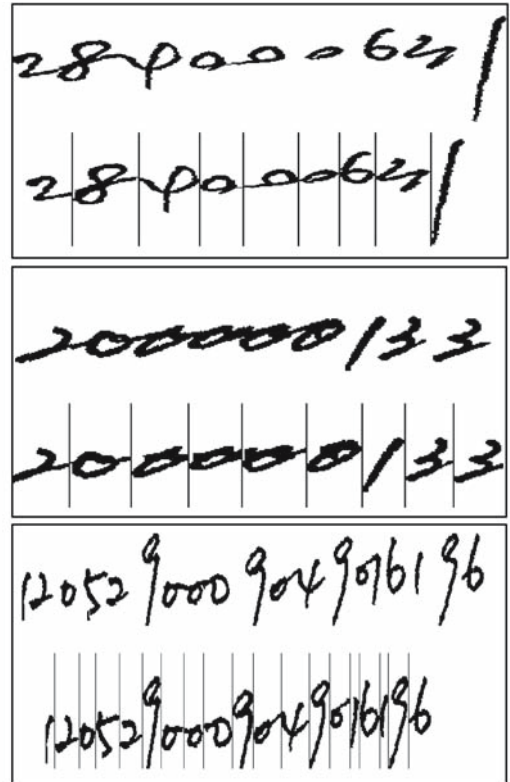 284000641
284000641
200000133
200000133
1205290009049016196
1205290009049016196